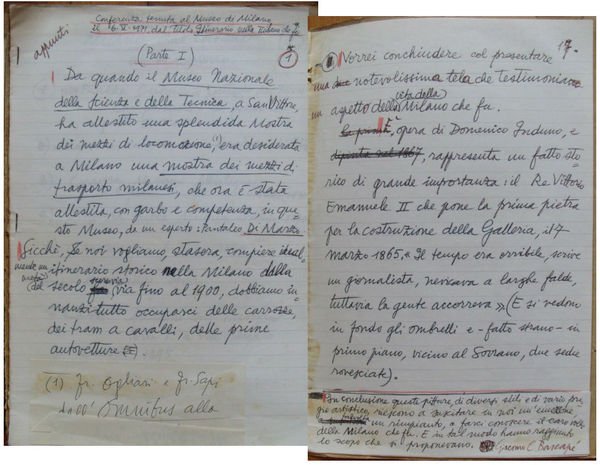 appunti
Conferenza tenuta al Museo di Milano
il 16.VI.1971, dal titolo Itinerario nella Milano che fu
1
(Parte I)
Da quando il Museo Nazionale
della Scienza e della Tecnica, a San Vittore,
ha allestito una splendida Mostra
dei mezzi di locomozione,(1) era desiderata
a Milano una mostra dei mezzi di
trasporto milanesi, che ora è stata
allestita, con garbo e competenza, in que
sto Museo, da un esperto: Pantaleo Di Marzo.
Sicchè, se noi vogliamo, stasera, compiere
itinerario storico nella Milano dalla
secolo via via fino al 1900, dobbiamo in-
nanzi tutto occuparci delle carrozze,
dei tram a cavalli, delle prime
autovetture (E).
(1) Fr. Ogliari e Fr. Sapi
dall' Omnibus alla
17.
Vorrei conchiudere col presentare
una notevolissima tela che testimonia
un aspetto della vita della Milano che fu.
È opera di Domenico Induno, e
dipinta nel 1867, rappresenta un fatto sto
rico di grande importanza: il Re Vittorio
Emanuele II che pone la prima pietra
per la costruzione della Galleria, il 7
marzo 1865. « Il tempo era orribile, scrive
un giornalista, nevicava a larghe falde,
tuttavia la gente accorreva » (E si vedono
in fondo gli ombrelli e - fatto strano - in
primo piano, vicino al Sovrano, due sedie
rovesciate).
In conclusione queste pitture, di diversi stili e di vario pre
gio artistico, riescono a suscitare in noi un'emozione,
a un rimpianto, a farci conoscere il caro volto
della Milano che fu. E in tal modo hanno raggiunto
lo scopo che si proponevano.
Giacomo C. Bascapé